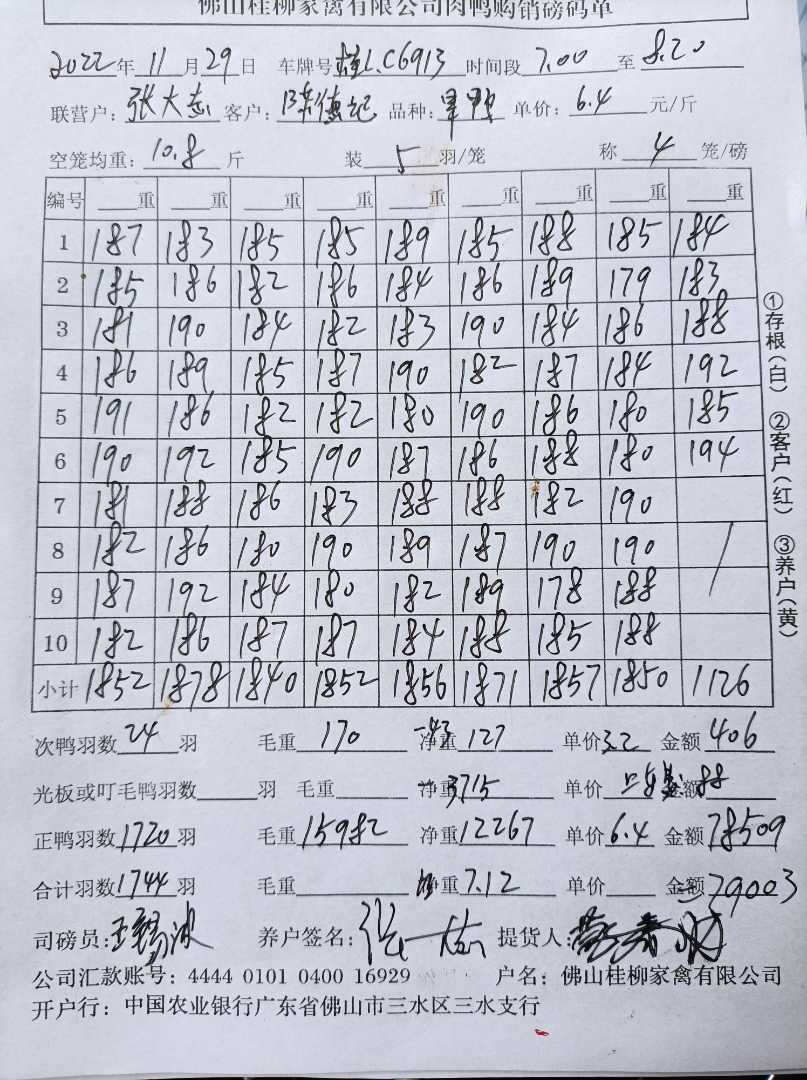 佛山桂柳家禽有限公司肉鸭购销磅码单
2022年11月29日 车牌号桂L.C6913时间段7.00至8.20
联营户:张大志 客户:陈德记 品种: 单价:6.4元/斤
空笼均重:10.8斤 装5羽/笼 称4笼/磅
编号 重 重 重 重 重 重 重 重 重
1 187 183 185 185 189 185 188 185 184
2 185 186 182 186 184 186 189 179 183
3 181 190 184 182 183 190 184 186 188
4 186 189 185 187 190 182 187 184 192
5 191 186 182 182 180 190 186 180 185
6 190 192 185 190 187 186 188 180 194
7 181 188 186 183 188 188 182 190
8 182 186 180 190 189 187 190 190
9 187 192 184 180 182 189 178 188
10 182 186 187 187 184 188 185 188
小计 1852 1878 1840 1852 1856 1871 1857 1850 1126
次鸭羽数24羽 毛重170 -43净重127 单价3.2 金额406
光板或叮毛鸭羽数 羽 毛重 净重3715 单价 金额88
正鸭羽数1720羽 毛重15982 净重12267 单价6.4 金额78509
合计羽数1744羽 毛重 净重7.12 单价 金额=79003
司磅员: 养户签名: 提货人:
公司汇款账号:4444 0101 0400 16929 户名:佛山桂柳家禽有限公司
开户行:中国农业银行广东省佛山市三水区三水支行
①存根(白) ②客户(红) ③养户(黄)